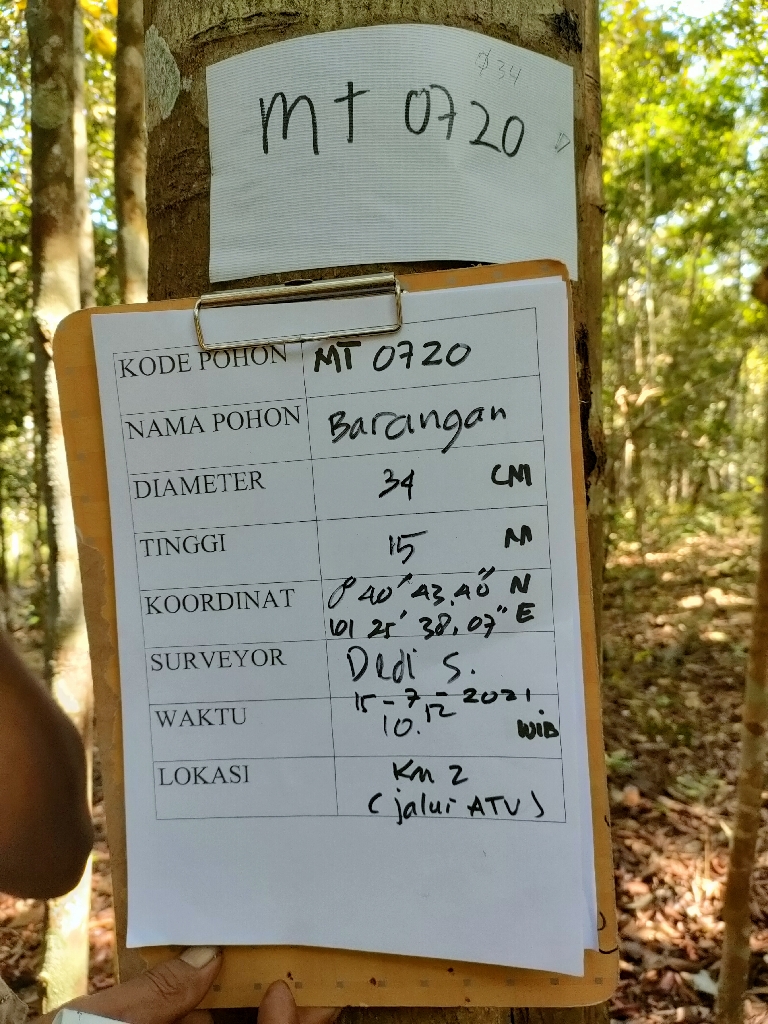 $34
MT 0720
KODE POHON MT 0720
NAMA POHON Barangan
DIAMETER 34 CM
TINGGI 15 M
KOORDINAT 0° 40' 43,40" N
101 25' 38,07" E
SURVEYOR Dedi S.
WAKTU 15-7-2021
10.12 WIB
LOKASI Km 2
(jalur ATV)